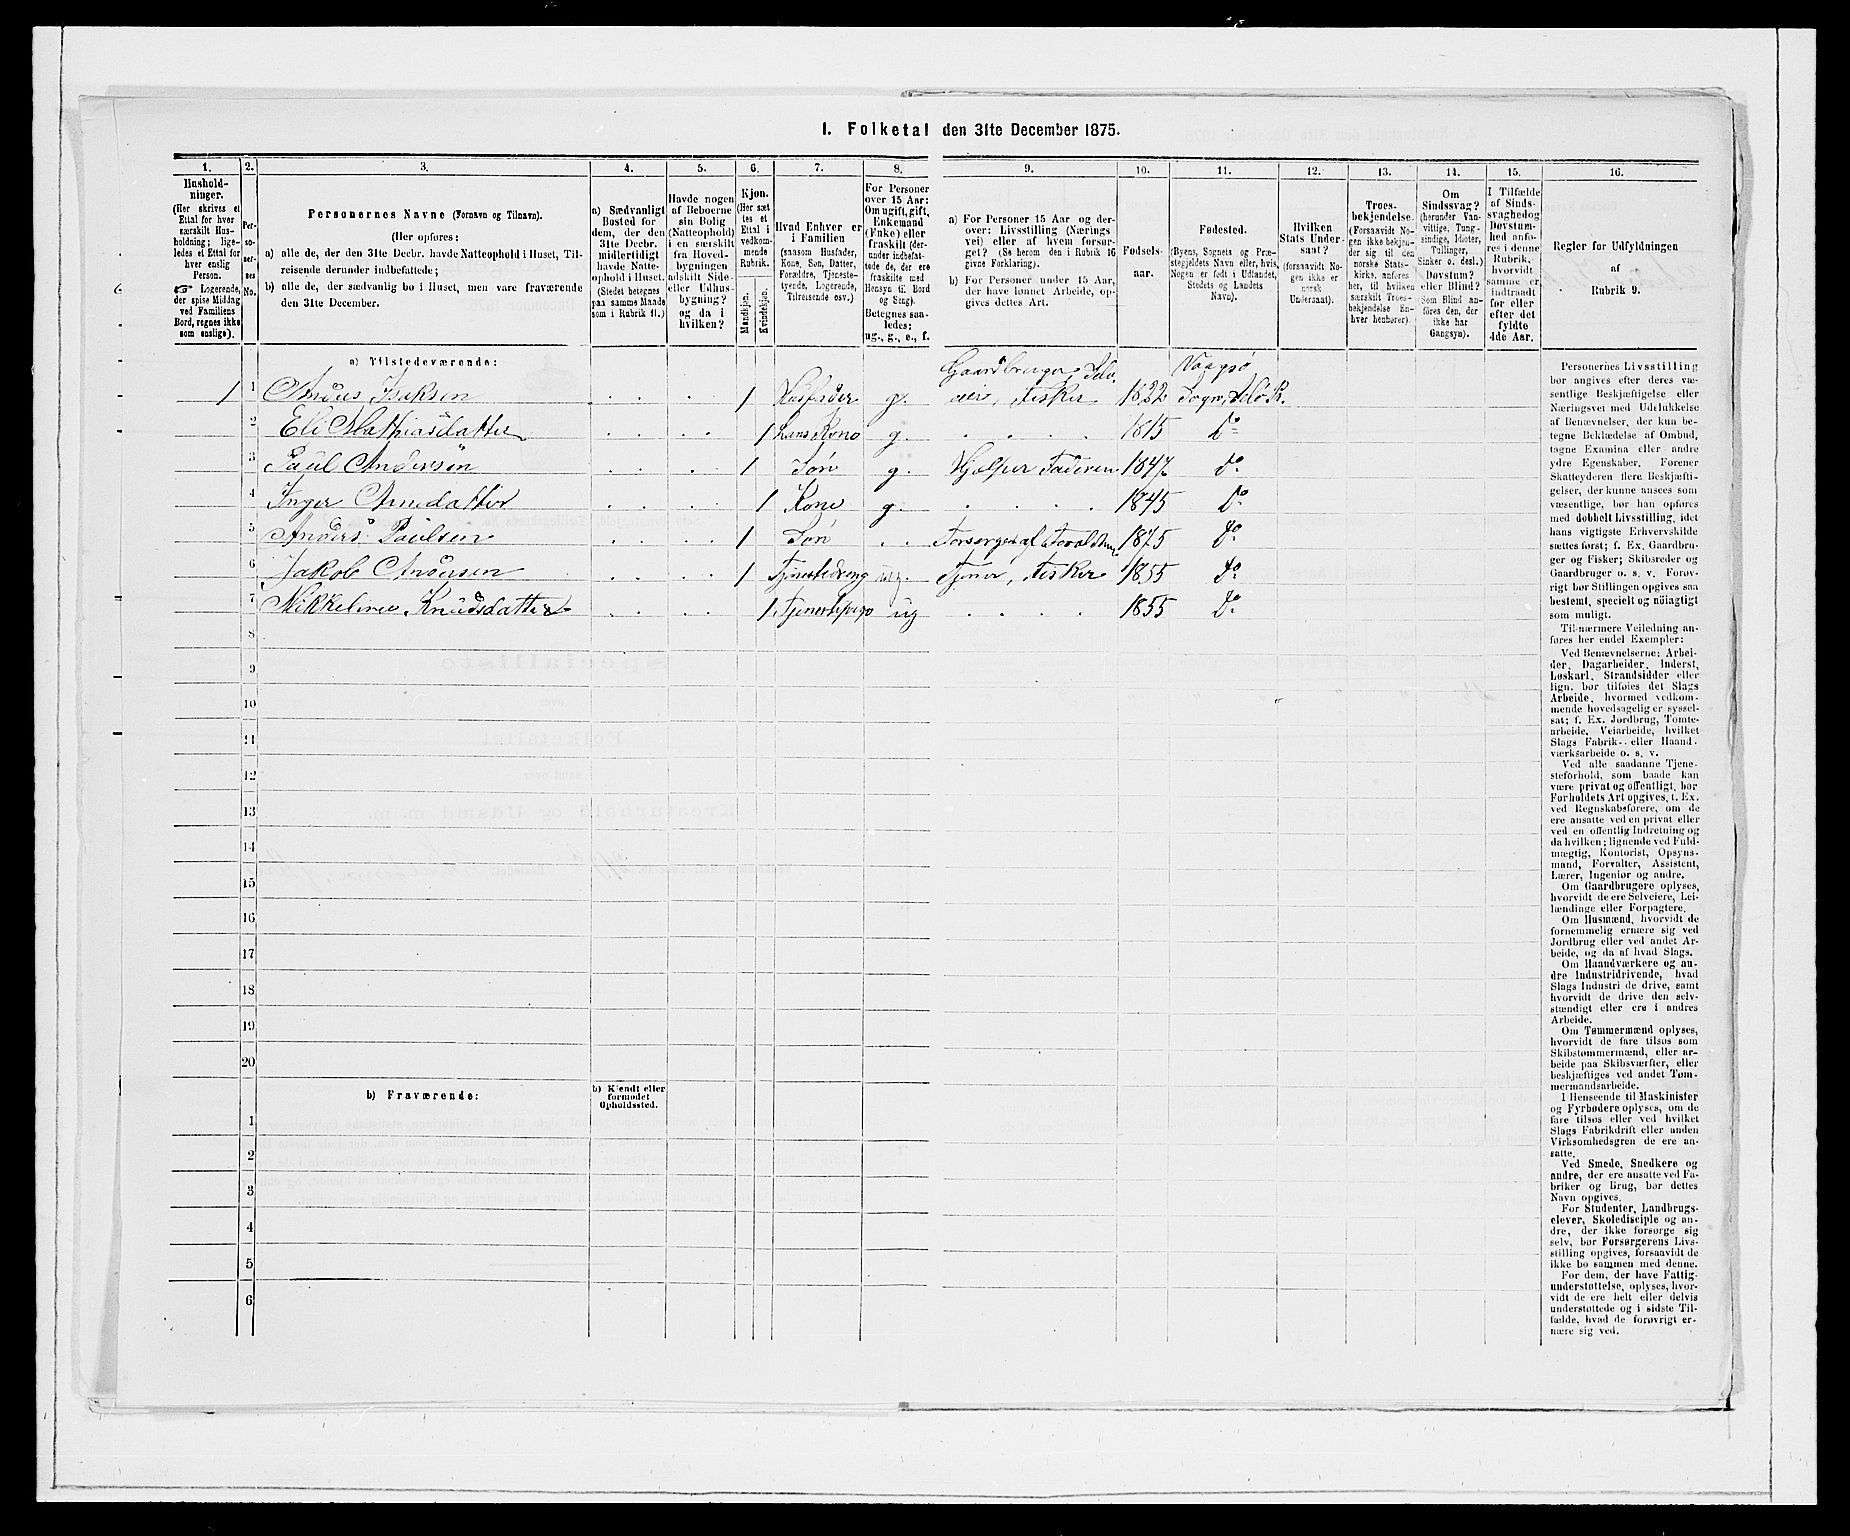 1. Folketal den 31te December 1875.
1. 2. 3. 4. 5. 6. 7. 8. 9. 10. 11. 12. 13. 14. 15. 16.
Hushold-
ninger.
(Her skrives et
Ettal for hver
særskilt Hus-
holdning; lige-
ledes et Ettal for
hver enslig
Person.
☞ Logerende,
der spise Middag
ved Familiens
Bord, regnes ikke
som enslige).
Per-
so-
ner-
nes
No.
Personernes Navne (Fornavn og Tilnavn).
(Her opføres:
a) alle de, der den 31te Decbr. havde Natteophold i Huset, Til-
reisende derunder indbefattede;
b) alle de, der sædvanlig bo i Huset, men vare fraværende
den 31te December.
a) Sædvanligt
Bosted for
dem, der den
31te Decbr.
midlertidigt
havde Natte-
ophold i Huset.
(Stedet betegnes
paa samme Maade
som i Rubrik 11.)
Havde nogen
af Beboerne
sin Bolig
(Natteophold)
i en særskilt
fra Hoved-
bygningen
adskilt Side-
eller Udhus-
bygning?
og da i
hvilken?
Kjøn.
(Her sæt-
tes et
Ettal i
vedkom-
mende
Rubrik.
Mandkjøn.
Kvindekjøn.
Hvad Enhver er
i Familien
(saasom Husfader,
Kone, Søn, Datter,
Forældre, Tjeneste-
tyende, Logerende,
Tilreisende osv.)
For Personer
over 15 Aar:
Om ugift, gift,
Enkemand
(Enke) eller
fraskilt (der-
under indbefat-
tede de, der ere
fraskilte med
Hensyn til Bord
og Seng).
Betegnes saa-
ledes:
ug., g., e., f.
a) For Personer 15 Aar og der-
over: Livsstilling (Nærings-
vei) eller af hvem forsør-
get? (Se herom den i Rubrik 16
givne Forklaring).
b) For Personer under 15 Aar,
der have lønnet Arbeide, op-
gives dettes Art.
Fødsels-
aar.
Fødested.
(Byens, Sognets og Præ-
stegjeldets Navn eller, hvis
Nogen er født i Udlandet,
Stedets og Landets
Navn).
Hvilken
Stats Under-
saat?
(forsaavidt No-
gen ikke er
norsk
Undersaat).
Troes-
bekjendelse.
(Forsaavidt No-
gen ikke bekjen-
der sig til den
norske Stats-
kirke, anføres
her, til hvilken
særskilt Troes-
bekjendelse En-
hver henhører).
Om
Sindssvag?
(herunder Van-
vittige, Tung-
sindige, Idioter,
Tullinger,
Sinker o. desl.)
Døvstum?
eller Blind?
Som Blind an-
føres den, der
ikke har
Gangsyn).
I Tilfælde
af Sinds-
svaghed og
Døvstum-
hed anfø-
res i denne
Rubrik,
hvorvidt
samme er
indtraadt
før eller
efter det
fyldte
4de Aar.
Regler for Udfyldningen
af
Rubrik 9.
a) Tilstedeværende:
Gaardbruger, Selv- Vaagsø
1 1 1 Husfader g. eier, Fisker 1822 Sogn, Selø P.
2 Eli Mathiasdatter 1 hans Kone g. 1815 Do
3 Paul Andersøn 1 Søn g. Hjælper Faderen 1847 Do
4 Inger 1 Kone g. 1845 Do
5 Anders Paulsen 1 Søn Forsørges af Forældrene 1875 Do
6 Jakob 1 Tjenestedreng ug. Tjener, Fisker 1855 Do
7 Mikkeline Knudsdatter 1 Tjenestepige ug 1855 Do
8
9
10
11
12
13
14
15
16
17
18
19
20
b) Fraværende: b) Kjendt eller
formodet
Opholdssted.
1
2
3
4
5
6
Personernes Livsstilling
bør angives efter deres væ-
sentlige Beskjæftigelse eller
Næringsvei med Udelukkelse
af Benævnelser, der kun be-
tegne Beklædelse af Ombud,
tagne Examina eller andre
ydre Egenskaber. Forener
Skatteyderen flere Beskjæfti-
gelser, der kunne ansees som
væsentlige, bør han opføres
med dobbelt Livsstilling, idet
hans vigtigste Erhvervskilde
sættes først; f. Ex. Gaardbru-
ger og Fisker; Skibsreder og
Gaardbruger o. s. v. Forøv-
rigt bør Stillingen opgives saa
bestemt, specielt og nöiagtigt
som muligt.
Til nærmere Veiledning an-
føres her endel Exempler:
Ved Benævnelserne: Arbei-
der, Dagarbeider, Inderst,
Løskarl, Strandsidder eller
lign. bør tilføies det Slags
Arbeide, hvormed vedkom-
mende hovedsagelig er syssel-
sat; f. Ex. Jordbrug, Tomte-
arbeide, Veiarbeide, hvilket
Slags Fabrik- eller Haand-
værksarbeide o. s. v.
Ved alle saadanne Tjene-
steforhold, som baade kan
være privat og offentligt, bør
Forholdets Art opgives, t. Ex.
ved Regnskabsførere, om de
ere ansatte ved en privat eller
ved en offentlig Indretning og
da hvilken; lignende ved Fuld-
mægtig, Kontorist, Opsyns-
mand, Forvalter, Assistent,
Lærer, Ingeniør og andre.
Om Gaardbrugere oplyses,
hvorvidt de ere Selveiere, Lei-
lændinge eller Forpagtere.
Om Husmænd, hvorvidt de
fornemmelig ernære sig ved
Jordbrug eller ved andet Ar-
beide, og da af hvad Slags.
Om Haandværkere og an-
dre Industridrivende, hvad
Slags Industri de drive, samt
hvorvidt de drive den selv-
stændigt eller ere i andres
Arbeide.
Om Tømmermænd oplyses,
hvorvidt de fare tilsøs som
Skibstømmermænd, eller ar-
beide paa Skibsværfter, eller
beskjæftiges ved andet Tøm-
mermandsarbeide.
I Henseende til Maskinister
og Fyrbødere oplyses, om de
fare tilsøs eller ved hvilket
Slags Fabrikdrift eller anden
Virksomhedsgren de ere an-
satte.
Ved Smede, Snedkere og
andre, der ere ansatte ved Fa-
briker og Brug, bør dettes
Navn opgives.
For Studenter, Landbrugs-
elever, Skoledisciple og an-
dre, der ikke forsørge sig
selv, bør Forsørgerens Livs-
stilling opgives, forsaavidt de
ikke bo sammen med denne.
For dem, der have Fattig-
understøttelse, oplyses, hvor-
vidt de ere helt eller delvis
understøttede og i sidste Til-
fælde, hvad de forøvrigt er-
nære sig ved.